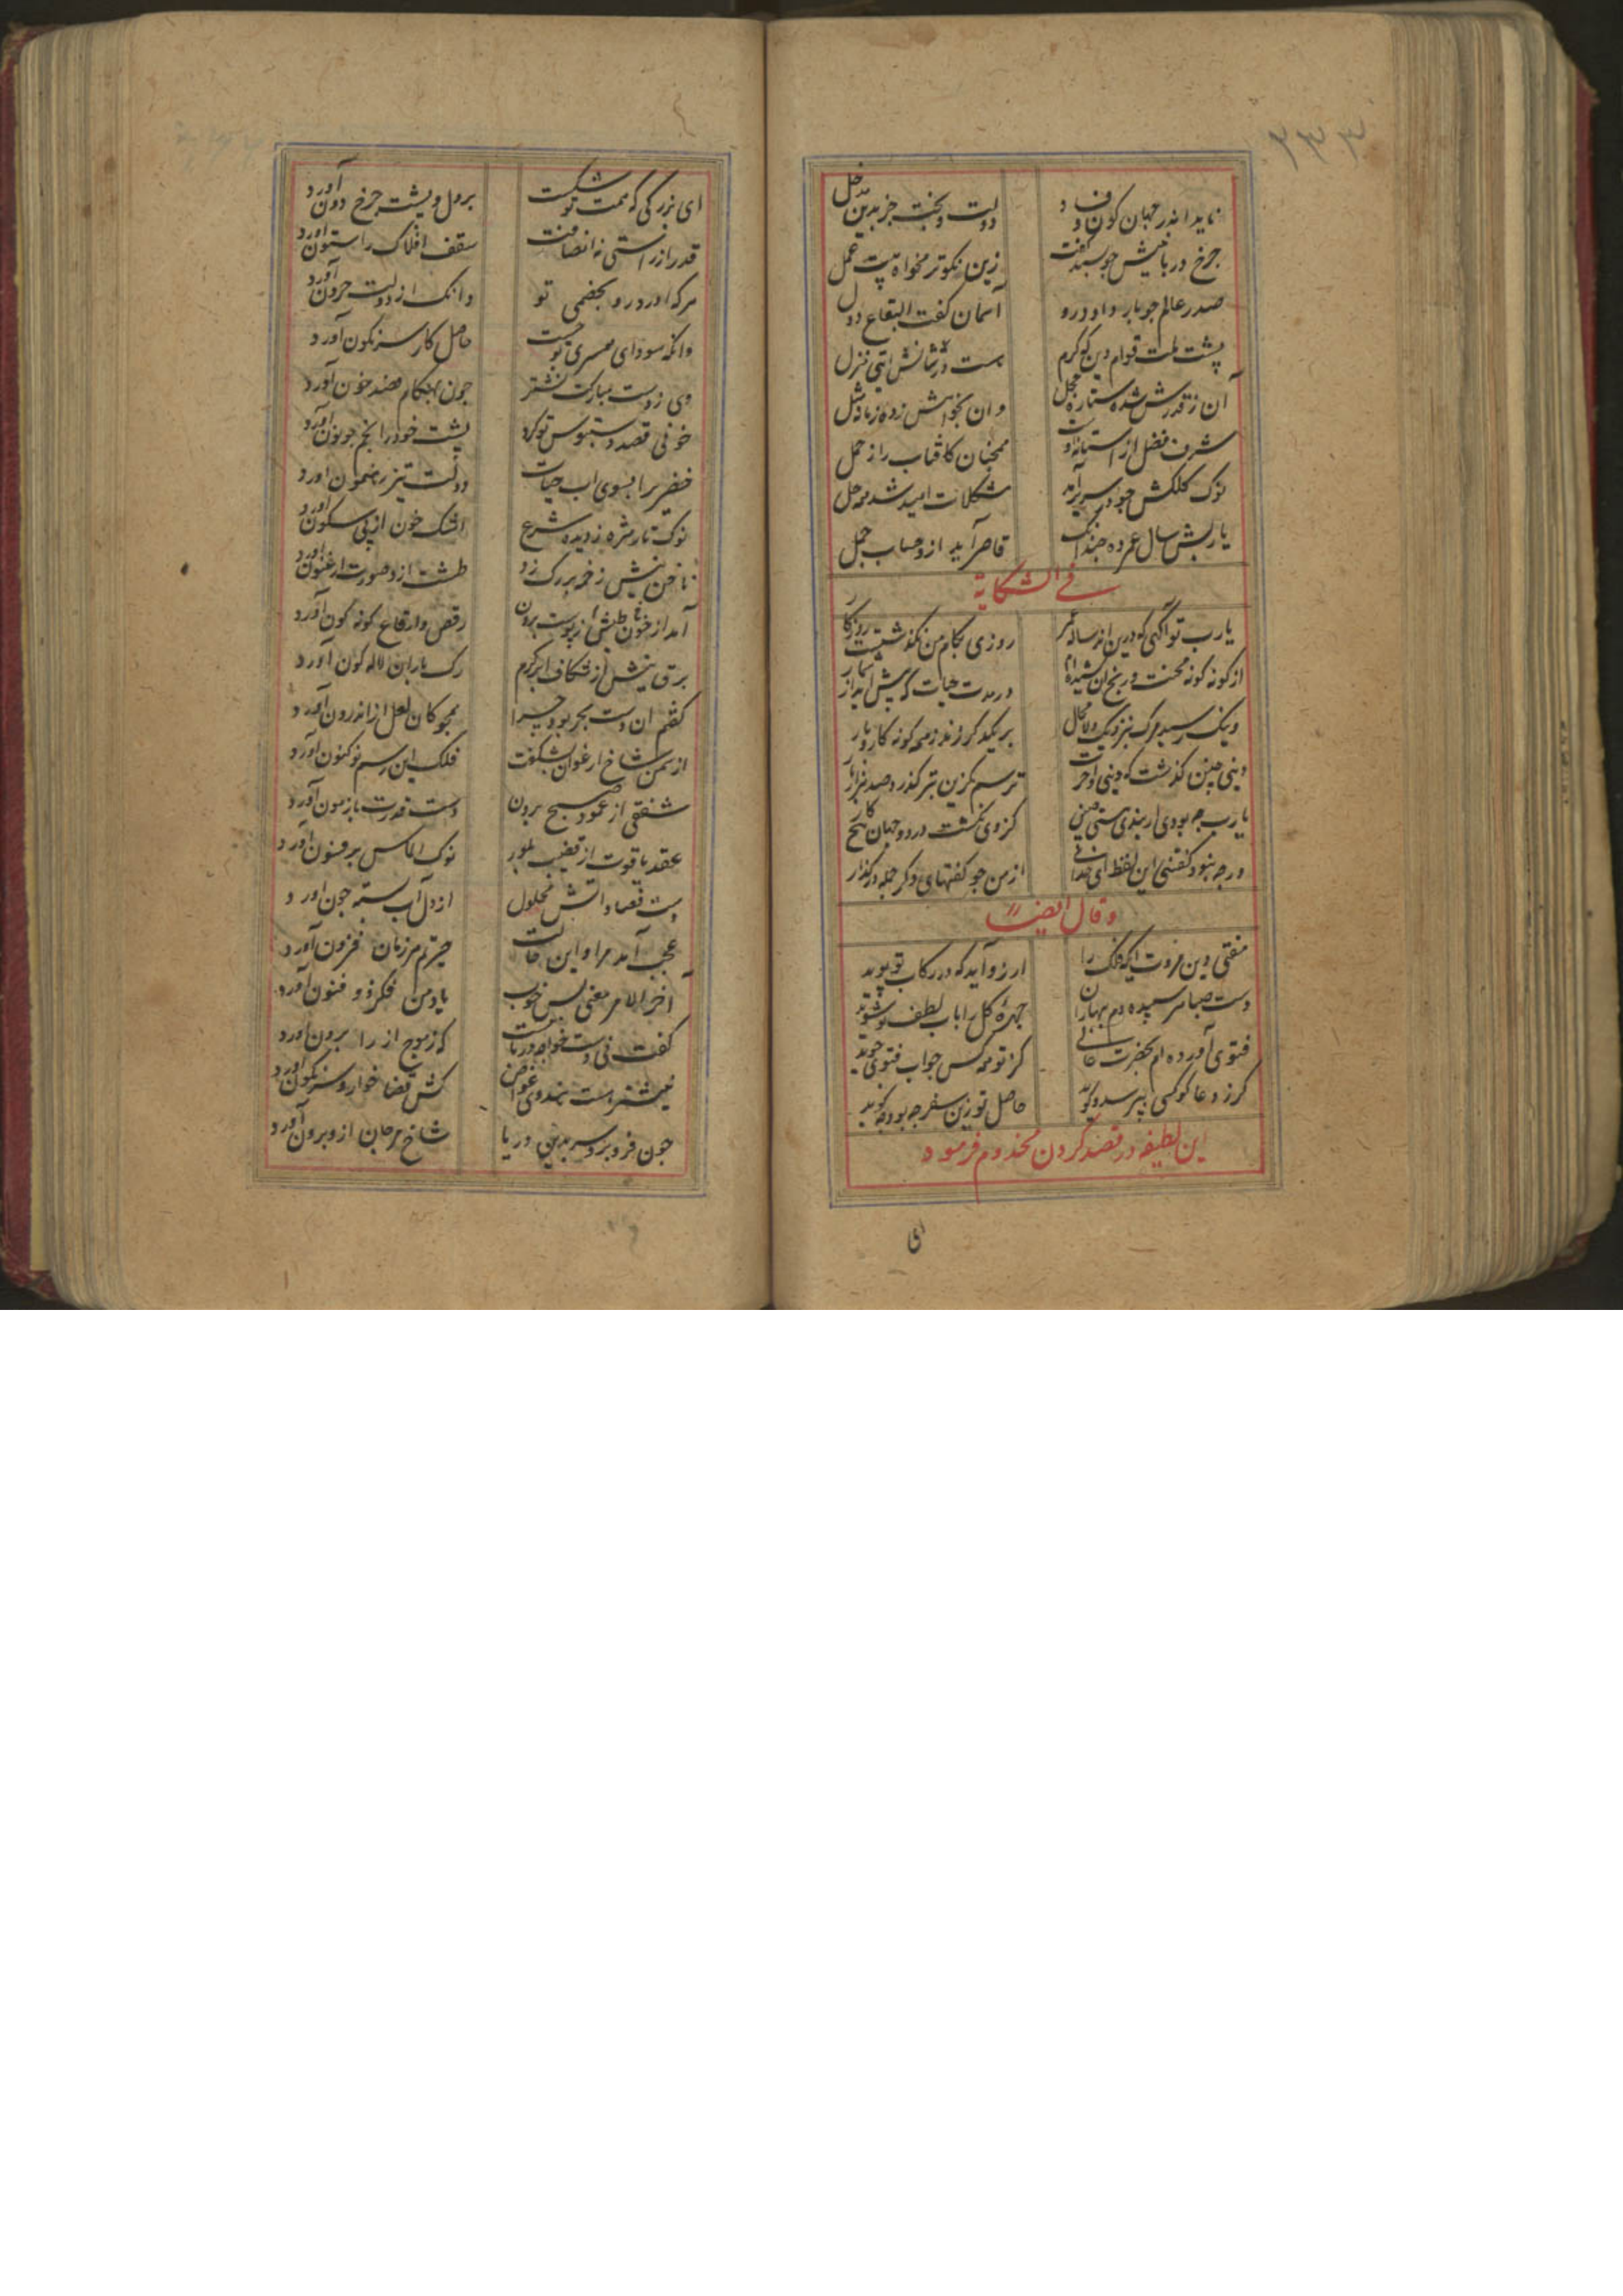 ۲۳۳
ناید اندر جهان کون و فساد دولت و بخت جز بدین مدخل
چرخ در بانیش جو بسپد گفت زین نکوتر مخواه هیچ عمل
صدر عالم جو بار داد درو آسمان گفت البقاع دول
پشت ملت قوام دین که کرم هست در شانش ایتی منزل
آن ز قدرش شده ستاره خجل وان بخوابش زده زمانه مثل
شرف فضل از آستانه اوست همچنان کافتاب را ز حمل
نوک کلکش جو در سریر آمد مشکلات امید شد همه حل
یا ربش سال عمر ده چندانک قاصر آید ازو حساب جمل
فی الشکایة
یارب تو آگهی که درین اند ساله عمر روزی بکام من نگذشتست روزگار
از گونه گونه محنت و رنج آن کشیده ام در مدت حیات که بیش آید از شمار
وینک رسید مرگ بنزدیک و لامحال بر یکدگر زند همه گونه کار و بار
دینی چنین گذشت که دینی و آخرت ترسم کزین بتر گذرد صد هزار بار
یارب چه بودی ار بندی هستی چنین کزوی نگشت در دو جهان هیچ کار
ورچه نبود گفتنی این لفظ ای خدای از من جو گفتهای دگر جمله درگذار
وقال ایضا
مفتی دین مروت ایکه فلک را ارزو آید که در رکاب تو پوید
دست صبا هر سپیده دم بهاران چهره گل را باب لطف تو شوید
فتوی آورده ام بحضرت عالی کز تو همه کس جواب فتوی جوید
گر ز دعا گو کسی بپرسد و گوید حاصل تو زین سفر چه بود چه گوید
این لطیفه در فصد کردن مخدوم فرموده
ای
ای بزرگی که همت تو شکست بر دل و پشت چرخ دون آورد
قدر از راستی انصافت سقف افلاک را ستون آورد
هرکه اورد رو بخصمی تو وانک از دولت حرون آورد
وانکه سودای همسری تو جست حاصل کار سرنگون آورد
وی ز دست مبارکت نشتر چون بهنگام فصد خون آورد
خونی قصد دستبوس تو کرد پشت خود را بخم چو نون آورد
خضر را بسوی اب حیات دولت تیز رهنمون اورد
نوک تار مژه ز دیده شرع اشک خون از پی سکون آورد
ناخن نیش زخمه بر رگ زد طشت ازو صورت ارغنون آورد
آمد از خون طپش از پوست برون رقص و ارقاع گونه گون آورد
برق نیش از شکاف ابر کرم رگ باران لاله گون آورد
گفتم ان دست بحر بود چرا همچو کان لعل از اندرون آورد
از سمن شاخ ارغوان بشکفت فلک این رسم نو کنون آورد
شفقی از عمود صبح برون دست قدرت بازمون آورد
عقد یاقوت از قضیب بلور نوک الماس پر فسون آورد
دست فصاد و اتش محلول از دل آب بسته چون اورد
عجب آمد مرا و این حالت حیرتم هر زمان فزون آورد
آخر الامر معنی بس خوب یاد من فکر ذو فنون آورد
گفت نی دست خواجه دریا نیست که ز موج از را برون آورد
نیشتر هست هندوی غواص کش قضا خوار و سرنگون اورد
چون فرو برد سر بدین دریا شاخ مرجان ازو برون آورد